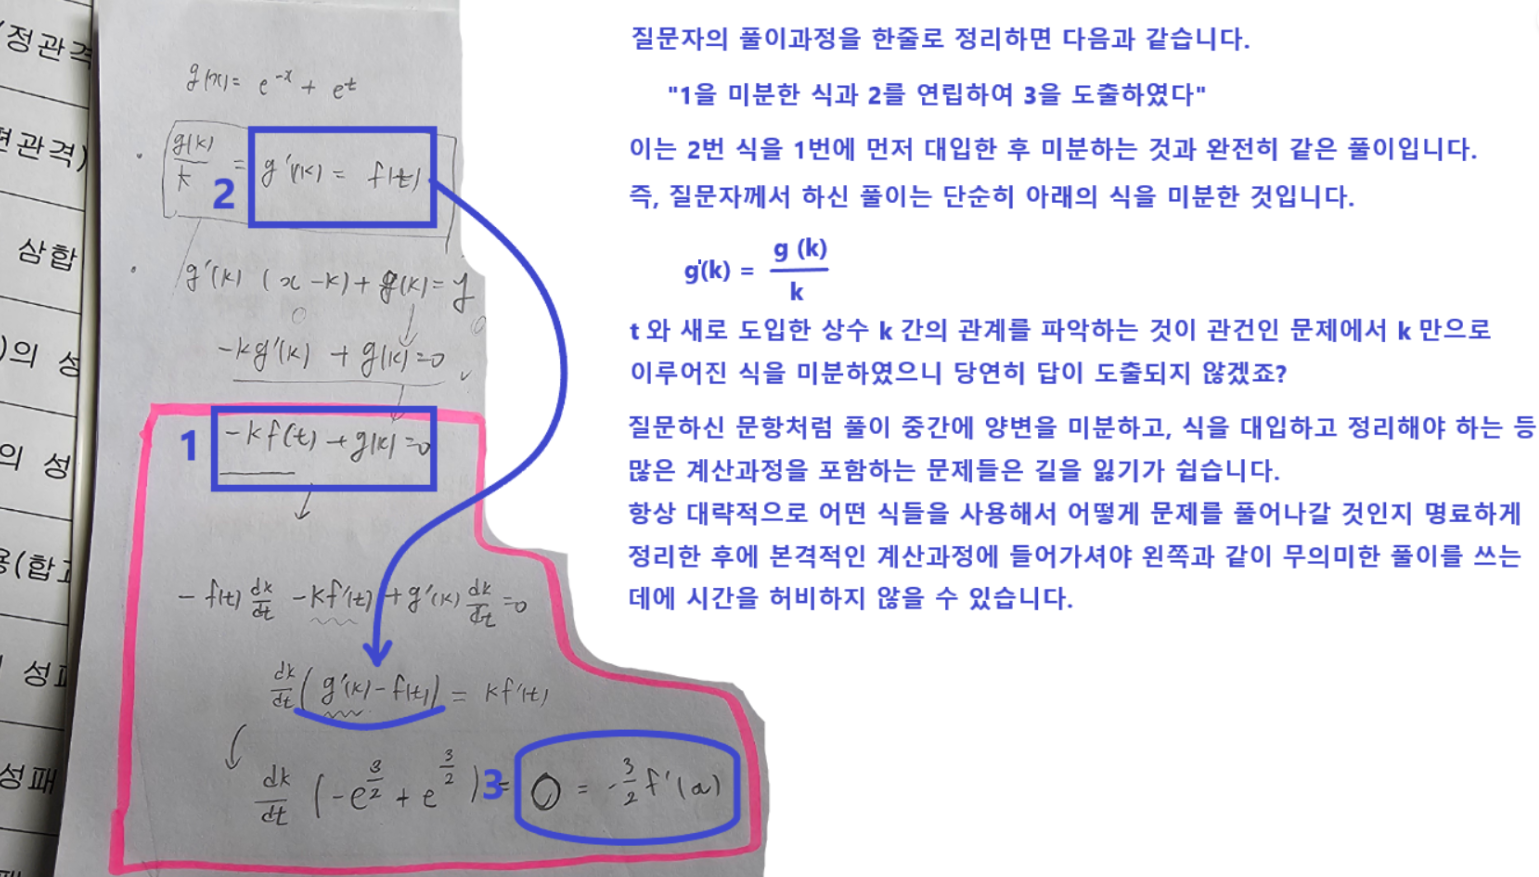 (정관격
편관격)
삼합
)의 성
의 성
용(합
성패
g(x) = e^{-x} + e^t
g(k)/k = g'(k) = f(t)
2
g'(k) (x-k) + g(k) = y
-kg'(k) + g(k) = 0
1
-kf(t) + g(k) = 0
-f(t) dk/dt - kf'(t) + g'(k) dk/dt = 0
dk/dt (g'(k) - f(t)) = kf'(t)
dk/dt (-e^{3/2} + e^{3/2}) = 0 = -3/2 f'(a)
3
질문자의 풀이과정을 한줄로 정리하면 다음과 같습니다.
"1을 미분한 식과 2를 연립하여 3을 도출하였다"
이는 2번 식을 1번에 먼저 대입한 후 미분하는 것과 완전히 같은 풀이입니다.
즉, 질문자께서 하신 풀이는 단순히 아래의 식을 미분한 것입니다.
g'(k) = g (k) / k
t 와 새로 도입한 상수 k 간의 관계를 파악하는 것이 관건인 문제에서 k 만으로
이루어진 식을 미분하였으니 당연히 답이 도출되지 않겠죠?
질문하신 문항처럼 풀이 중간에 양변을 미분하고, 식을 대입하고 정리해야 하는 등
많은 계산과정을 포함하는 문제들은 길을 잃기가 쉽습니다.
항상 대략적으로 어떤 식들을 사용해서 어떻게 문제를 풀어나갈 것인지 명료하게
정리한 후에 본격적인 계산과정에 들어가셔야 왼쪽과 같이 무의미한 풀이를 쓰는
데에 시간을 허비하지 않을 수 있습니다.